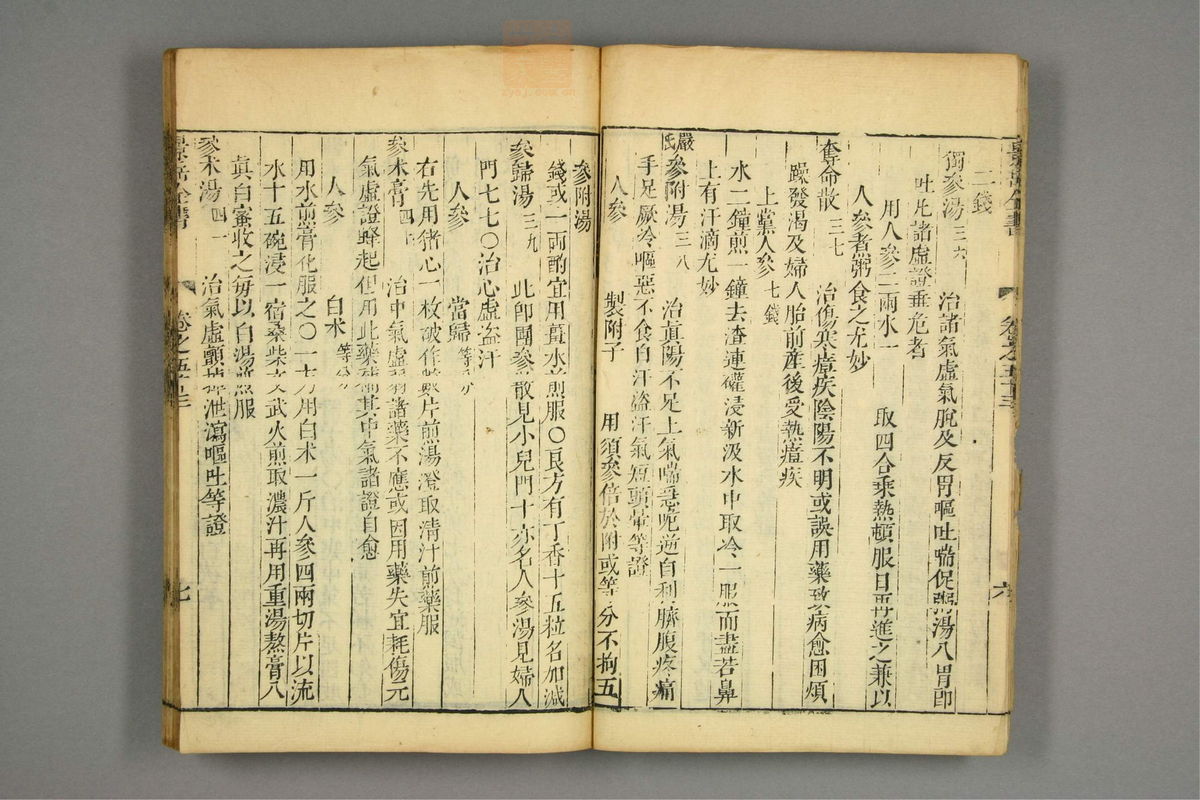 景岳全書 卷之五十三 六
二錢
獨參湯 三六 治諸氣虛氣脫及反胃嘔吐喘促粥湯入胃即
吐凡諸虛證垂危者
用人參二兩水一 取四合乘熱頓服日再進之兼以
人參煮粥食之尤妙
奪命散 三七 治傷寒瘴疾陰陽不明或誤用藥致病愈困煩
躁發渴及婦人胎前產後受熱瘟疾
上黨人參 七錢
水二鐘煎一鐘去渣連罐浸新汲水中取冷一服而盡若鼻
上有汗滴尤妙
嚴氏參附湯 三八 治眞陽不足上氣喘急呃逆自利臍腹疼痛
手足厥冷嘔惡不食自汗盜汗氣短頭暈等證
人參 製附子 用須參倍於附或等分不拘五
錢或一兩酌宜用薑水煎服〇良方有丁香十五粒名加減
參附湯
參歸湯 三九 此卽團參散見小兒門十亦名人參湯見婦人
門七七〇治心虛盜汗
人參 當歸 等分
右先用猪心一枚破作數片煎湯澄取清汁煎藥服
參术膏 四十 治中氣虛弱諸藥不應或因用藥失宜耗傷元
氣虛證蜂起但用此藥補其中氣諸證自愈
人參 白术 等分
用水煎膏化服之〇一方用白术一斤人參四兩切片以流
水十五碗浸一宿桑柴文武火煎取濃汁再用重湯熬膏入
眞白蜜收之每以白湯點服
參术湯 四一 治氣虛顫掉泄瀉嘔吐等證
景岳全書 卷之五十三 七